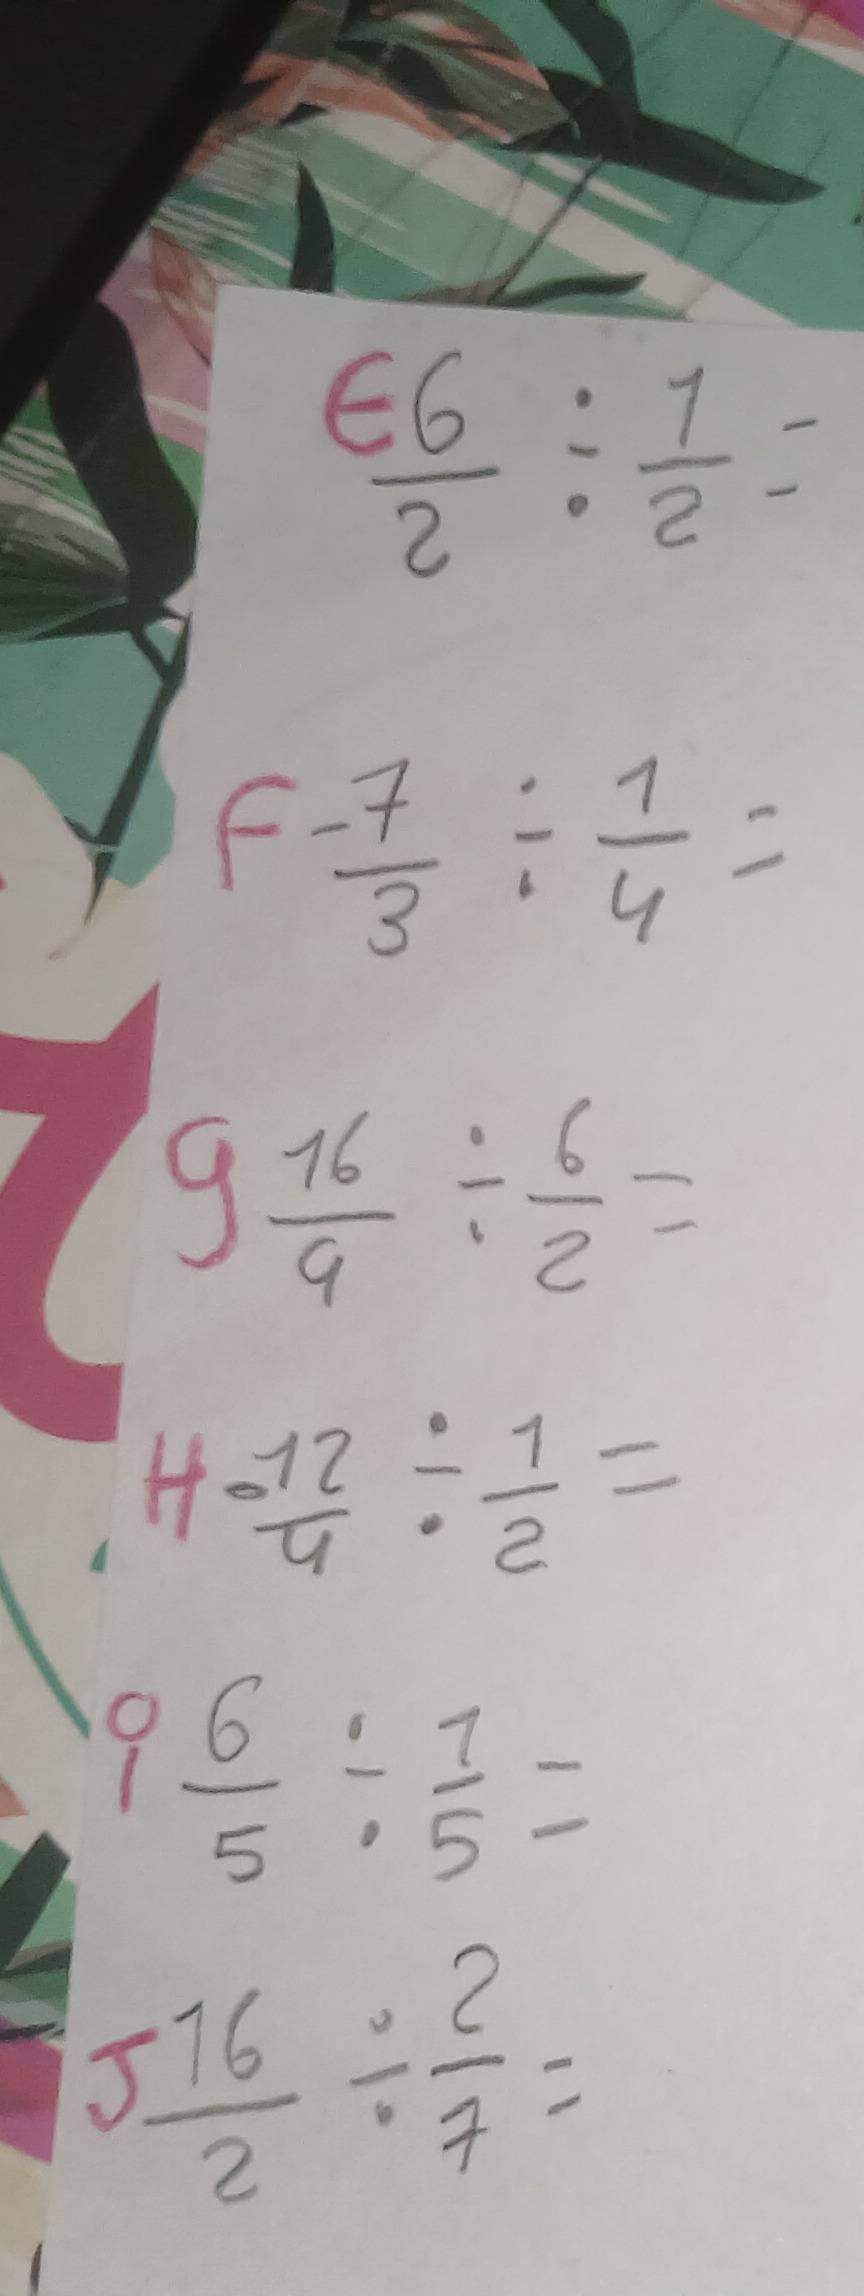 E 6/2 ÷ 1/2 =
F -7/3 ÷ 1/4 =
G 16/9 ÷ 6/2 =
H -12/4 ÷ 1/2 =
i 6/5 ÷ 1/5 =
J 16/2 ÷ 2/7 =